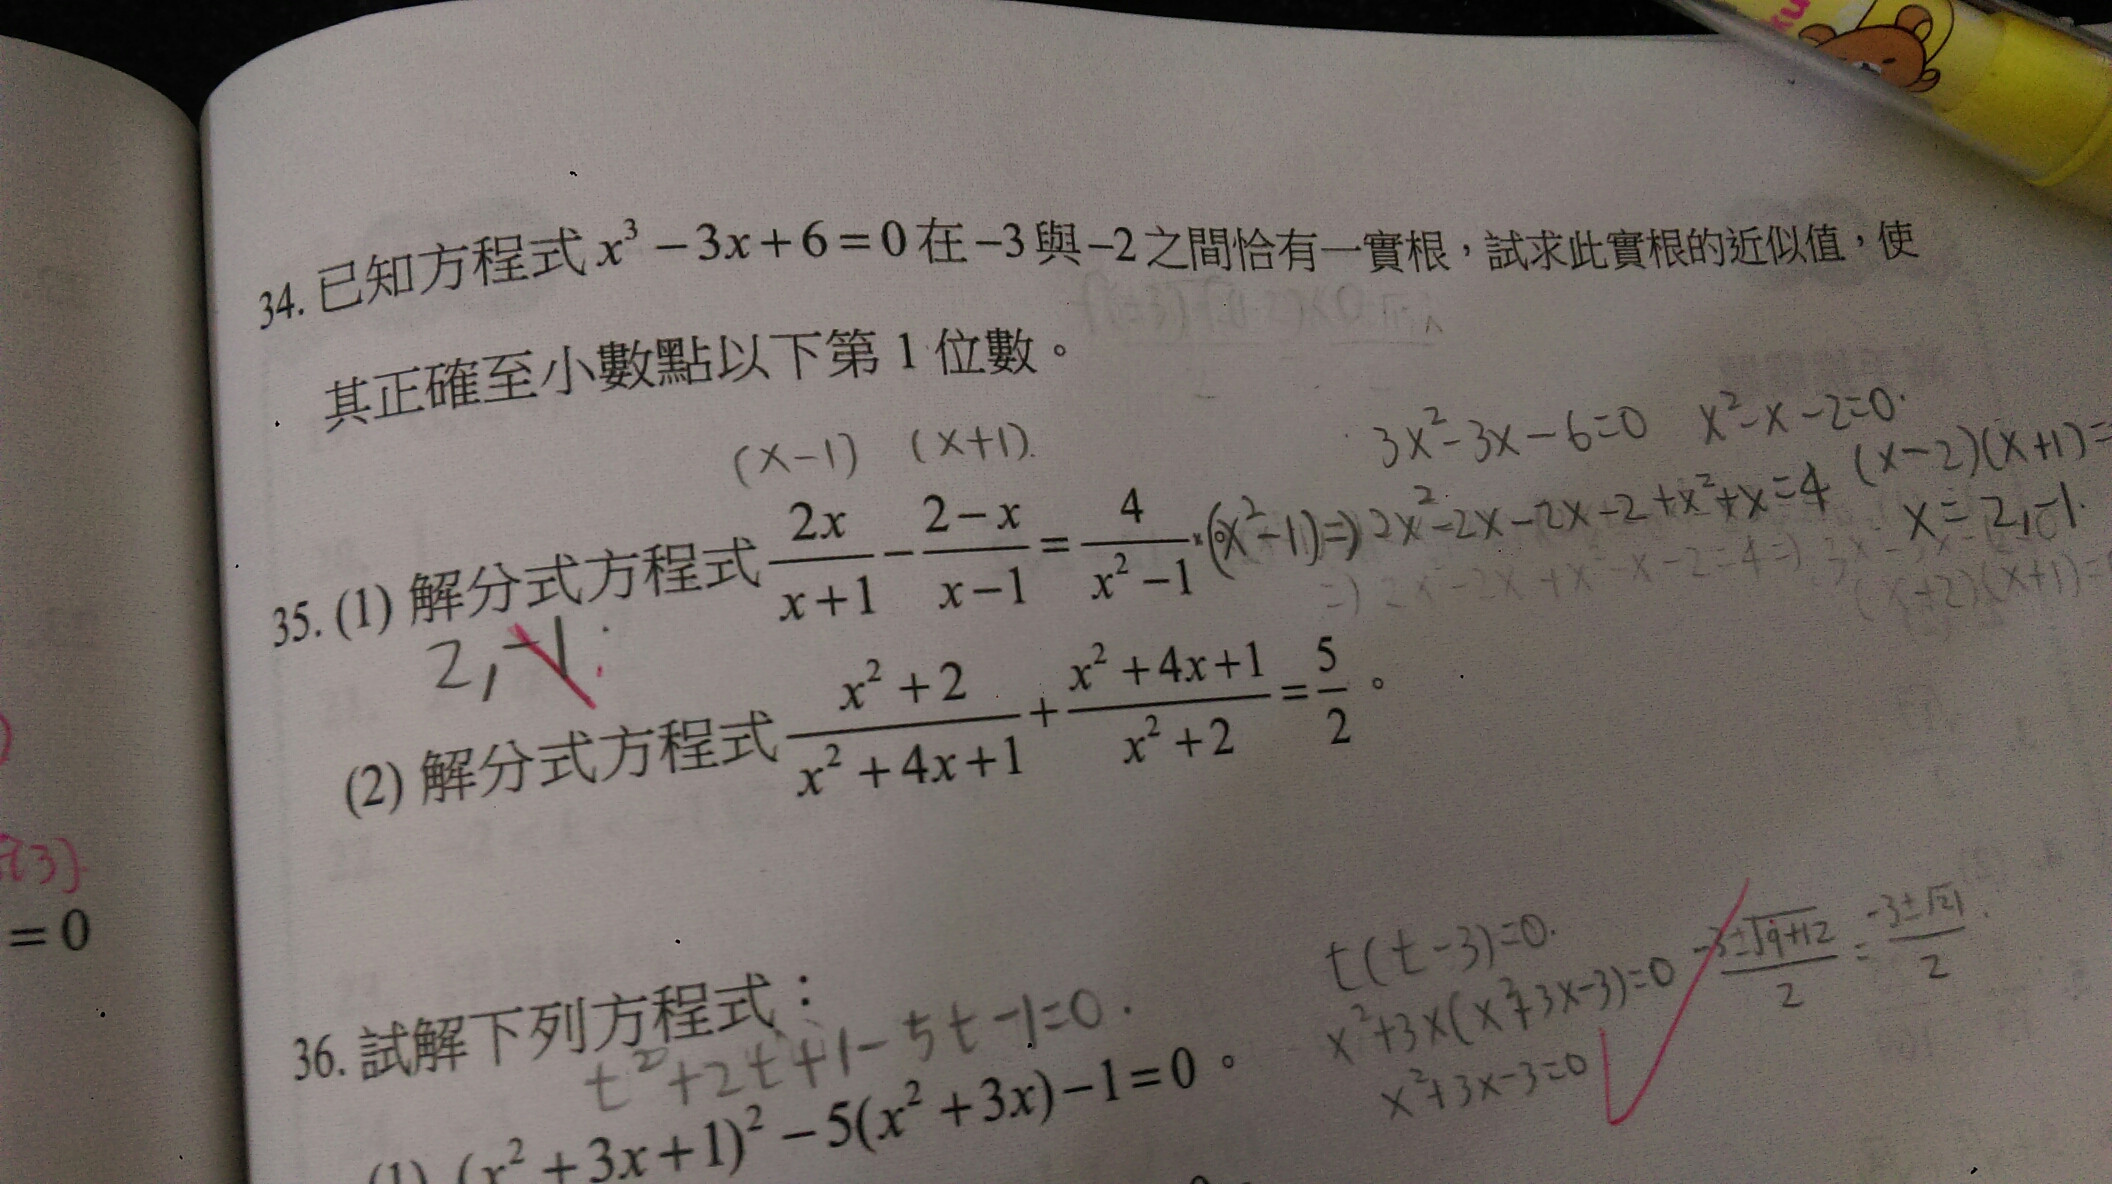 34. 已知方程式 x³ − 3x + 6 = 0 在 −3 與 −2 之間恰有一實根，試求此實根的近似值，使
其正確至小數點以下第 1 位數。
(x−1) (x+1).
3x²−3x−6=0 x²−x−2=0.
(x−2)(x+1)=
x=2,−1.
35. (1) 解分式方程式 2x/(x+1) − (2−x)/(x−1) = 4/(x²−1) 。 (x²−1) ⇒ 2x²−2x−2x−2+x²+x=4
⇒ 2x²−2x+x²−x−2=4 ⇒
(x+2)(x+1)=
2,−1.
(2) 解分式方程式 (x²+2)/(x²+4x+1) + (x²+4x+1)/(x²+2) = 5/2 。
{3}
= 0
36. 試解下列方程式：
t²+2t+1−5t−1=0.
t(t−3)=0.
x²+3x(x²+3x−3)=0
x²+3x−3=0
(−3±√(9+12))/2 = (−3±√21)/2.
(1) (x² + 3x + 1)² − 5(x² + 3x) − 1 = 0 。